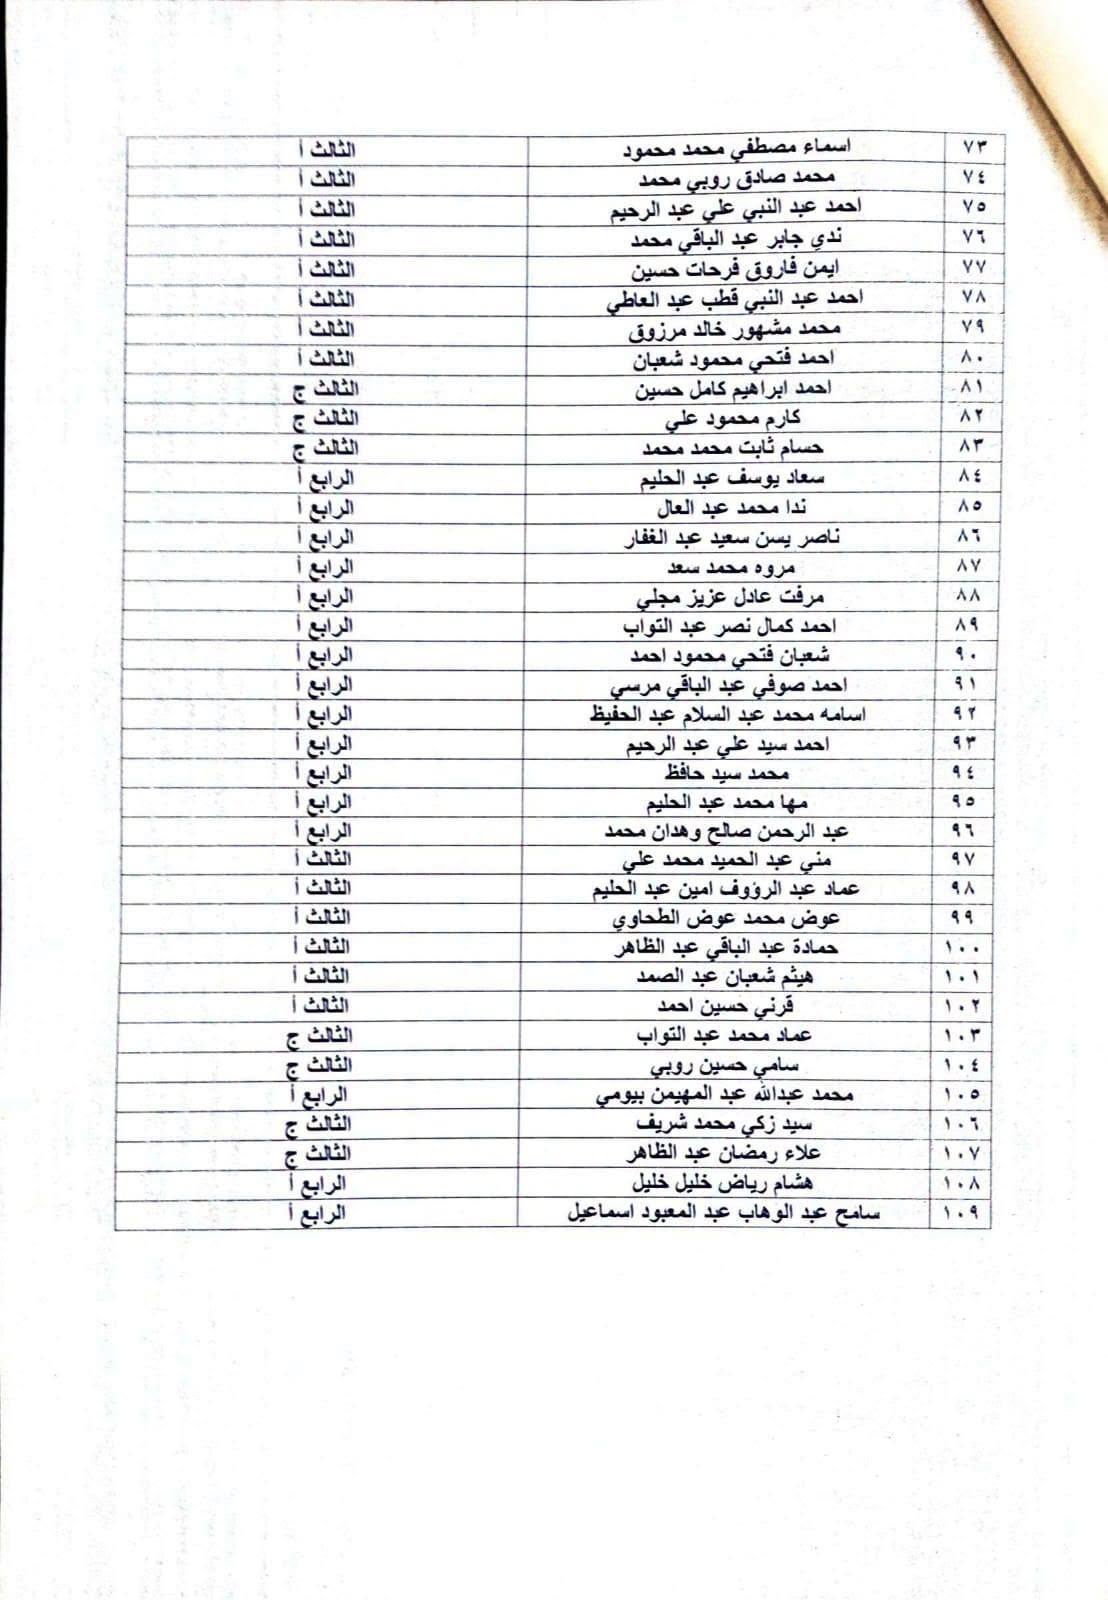 ٧٣ اسماء مصطفي محمد محمود الثالث أ
٧٤ محمد صادق روبي محمد الثالث أ
٧٥ احمد عبد النبي علي عبد الرحيم الثالث أ
٧٦ ندي جابر عبد الباقي محمد الثالث أ
٧٧ ايمن فاروق فرحات حسين الثالث أ
٧٨ احمد عبد النبي قطب عبد العاطي الثالث أ
٧٩ محمد مشهور خالد مرزوق الثالث أ
٨٠ احمد فتحي محمود شعبان الثالث أ
٨١ احمد ابراهيم كامل حسين الثالث ج
٨٢ كارم محمود علي الثالث ج
٨٣ حسام ثابت محمد محمد الثالث ج
٨٤ سعاد يوسف عبد الحليم الرابع أ
٨٥ ندا محمد عبد العال الرابع أ
٨٦ ناصر يسن سعيد عبد الغفار الرابع أ
٨٧ مروه محمد سعد الرابع أ
٨٨ مرفت عادل عزيز مجلي الرابع أ
٨٩ احمد كمال نصر عبد التواب الرابع أ
٩٠ شعبان فتحي محمود احمد الرابع أ
٩١ احمد صوفي عبد الباقي مرسي الرابع أ
٩٢ اسامه محمد عبد السلام عبد الحفيظ الرابع أ
٩٣ احمد سيد علي عبد الرحيم الرابع أ
٩٤ محمد سيد حافظ الرابع أ
٩٥ مها محمد عبد الحليم الرابع أ
٩٦ عبد الرحمن صالح وهدان محمد الرابع أ
٩٧ مني عبد الحميد محمد علي الثالث أ
٩٨ عماد عبد الرؤوف امين عبد الحليم الثالث أ
٩٩ عوض محمد عوض الطحاوي الثالث أ
١٠٠ حمادة عبد الباقي عبد الظاهر الثالث أ
١٠١ هيثم شعبان عبد الصمد الثالث أ
١٠٢ قرني حسين احمد الثالث أ
١٠٣ عماد محمد عبد التواب الثالث ج
١٠٤ سامي حسين روبي الثالث ج
١٠٥ محمد عبدالله عبد المهيمن بيومي الرابع أ
١٠٦ سيد زكي محمد شريف الثالث ج
١٠٧ علاء رمضان عبد الظاهر الثالث ج
١٠٨ هشام رياض خليل خليل الرابع أ
١٠٩ سامح عبد الوهاب عبد المعبود اسماعيل الرابع أ